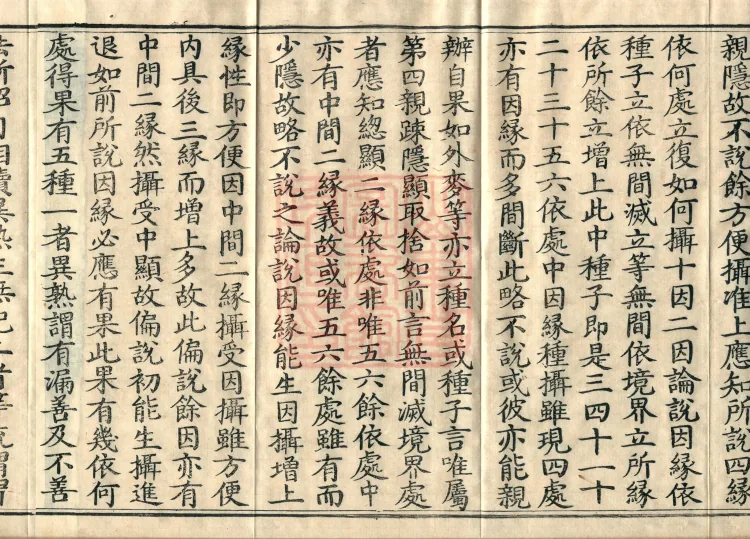 親隱故不說餘方便攝准上應知所說四緣
依何處立復如何攝十因二因論說因緣依
種子立依無間滅立等無間依境界立所緣
依所餘立增上此中種子即是三四十一十
二十三十五六依處中因緣種攝雖現四處
亦有因緣而多間斷此略不說或彼亦能親
辦自果如外麥等亦立種名或種子言唯屬
第四親疎隱顯取捨如前言無間滅境界處
者應知總顯二緣依處非唯五六餘依處中
亦有中間二緣義故或唯五六餘處雖有而
少隱故略不說之論說因緣能生因攝增上
緣性即方便因中間二緣攝受因攝雖方便
內具後三緣而增上多故此偏說餘因亦有
中間二緣然攝受中顯故偏說初能生攝進
退如前所說因緣必應有果此果有幾依何
處得果有五種一者異熟謂有漏善及不善